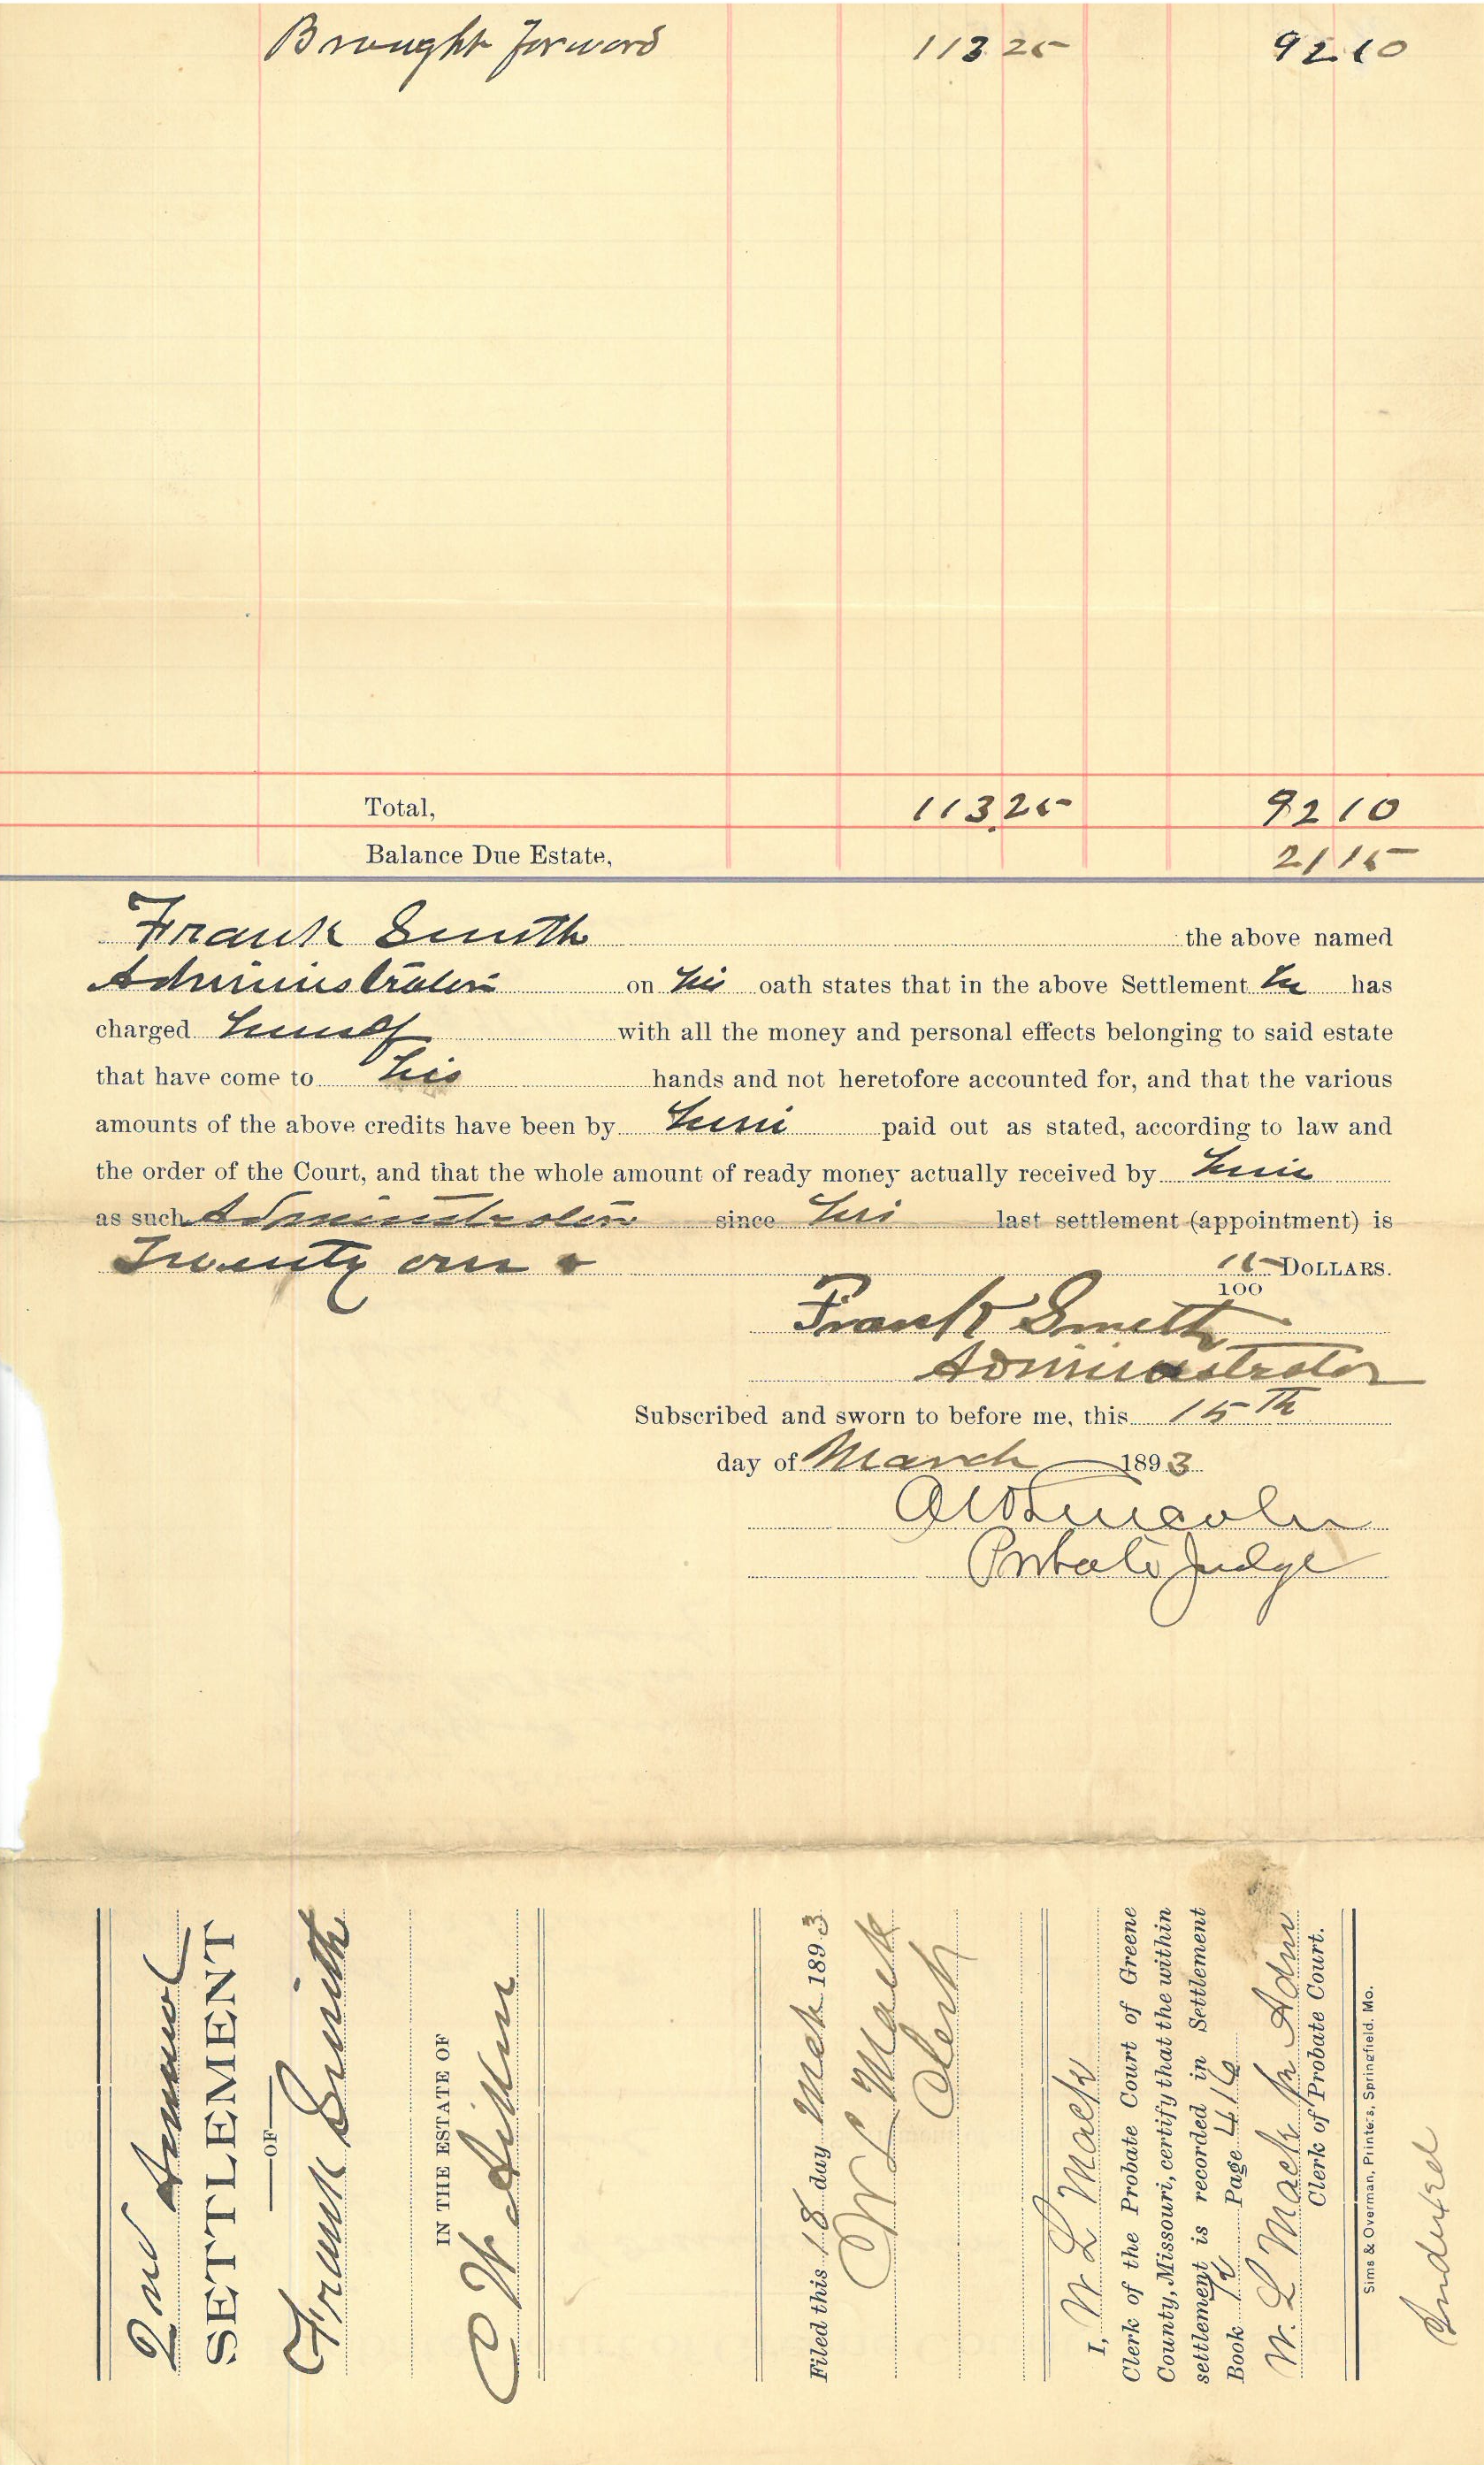 Brought forward 113 25 92 10
Total, 113.25 92 10
Balance Due Estate, 21 15
Frank Smith the above named
Administrator on his oath states that in the above Settlement he has
charged himself with all the money and personal effects belonging to said estate
that have come to his hands and not heretofore accounted for, and that the various
amounts of the above credits have been by him paid out as stated, according to law and
the order of the Court, and that the whole amount of ready money actually received by him
as such Administrator since his last settlement (appointment) is
Twenty one + 15/100 DOLLARS.
Frank Smith
Administrator
Subscribed and sworn to before me, this 15th
day of March 1893
A W Lincoln
Probate Judge
2nd Annual
SETTLEMENT
OF
Frank Smith
IN THE ESTATE OF
C W
Filed this 18 day Mch 1893
W L Mack
Clerk
I, W L Mack
Clerk of the Probate Court of Greene
County, Missouri, certify that the within
settlement is recorded in Settlement
Book Page 416
W. L Mack
Clerk of Probate Court.
Sims & Overman, Printers, Springfield, Mo.
Indexed